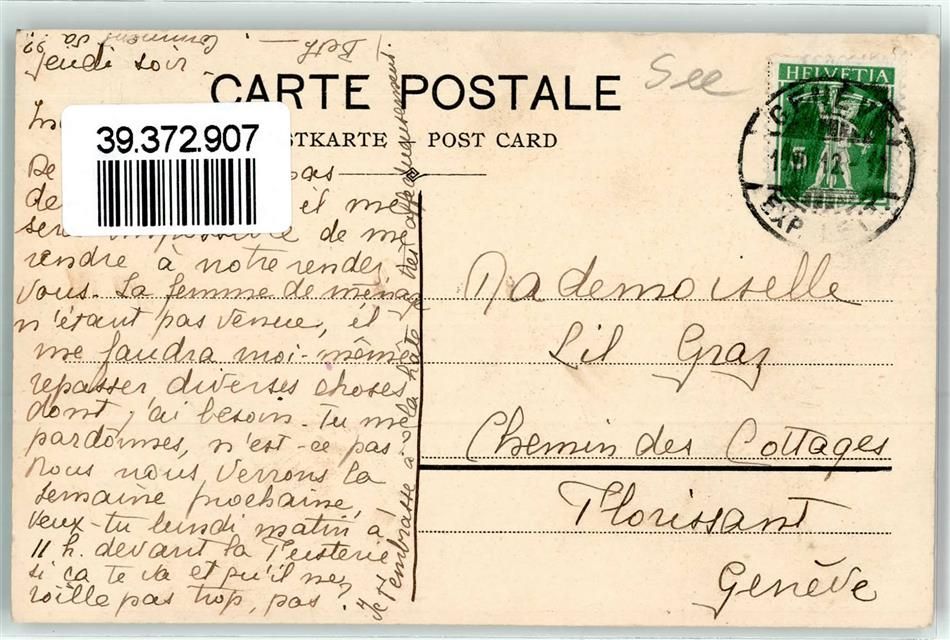 Jeudi soir
CARTE POSTALE
POST CARD
See
HELVETIA
39.372.907
pas
de il me
sera impossible de me
rendre à notre rendez
vous. La femme de ménage
n'étant pas venue, il
me faudra moi-même
repasser diverses choses
dont j'ai besoin. Tu me
pardonnes, n'est-ce pas
Nous nous verrons la
semaine prochaine,
veux-tu lundi matin à
11 h. devant la Fusterie
si ça te va et qu'il ne
roille pas trop, pas?
Je t'embrasse à la hâte très affectueusement.
Mademoiselle
Lil Graz
Chemin des Cottages
Florissant
Genève